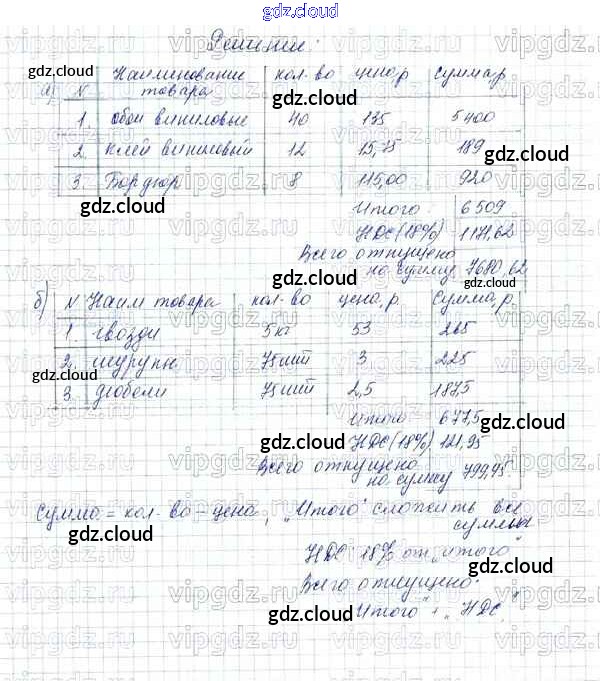 gdz.cloud
Решение:
а) N Наименование товара кол-во цена,р сумма,р
1. Обои виниловые 40 135 5400
2. Клей виниловый 12 15,75 189
3. Бордюр 8 115,00 920
Итого 6509
НДС (18%) 1171,62
Всего отпущено
на сумму 7680,62
б) N Наим товара кол-во цена, р. Сумма, р.
1. гвозди 5кг 53 265
2. шурупы 75шт 3 225
3. дюбели 75шт 2,5 187,5
Итого 677,5
НДС (18%) 121,95
Всего отпущено
на сумму 799,45.
Сумма = кол-во - цена, „Итого" сложить все
суммы
НДС 18% от „итого"
Всего отпущено:
„Итого" + „НДС"